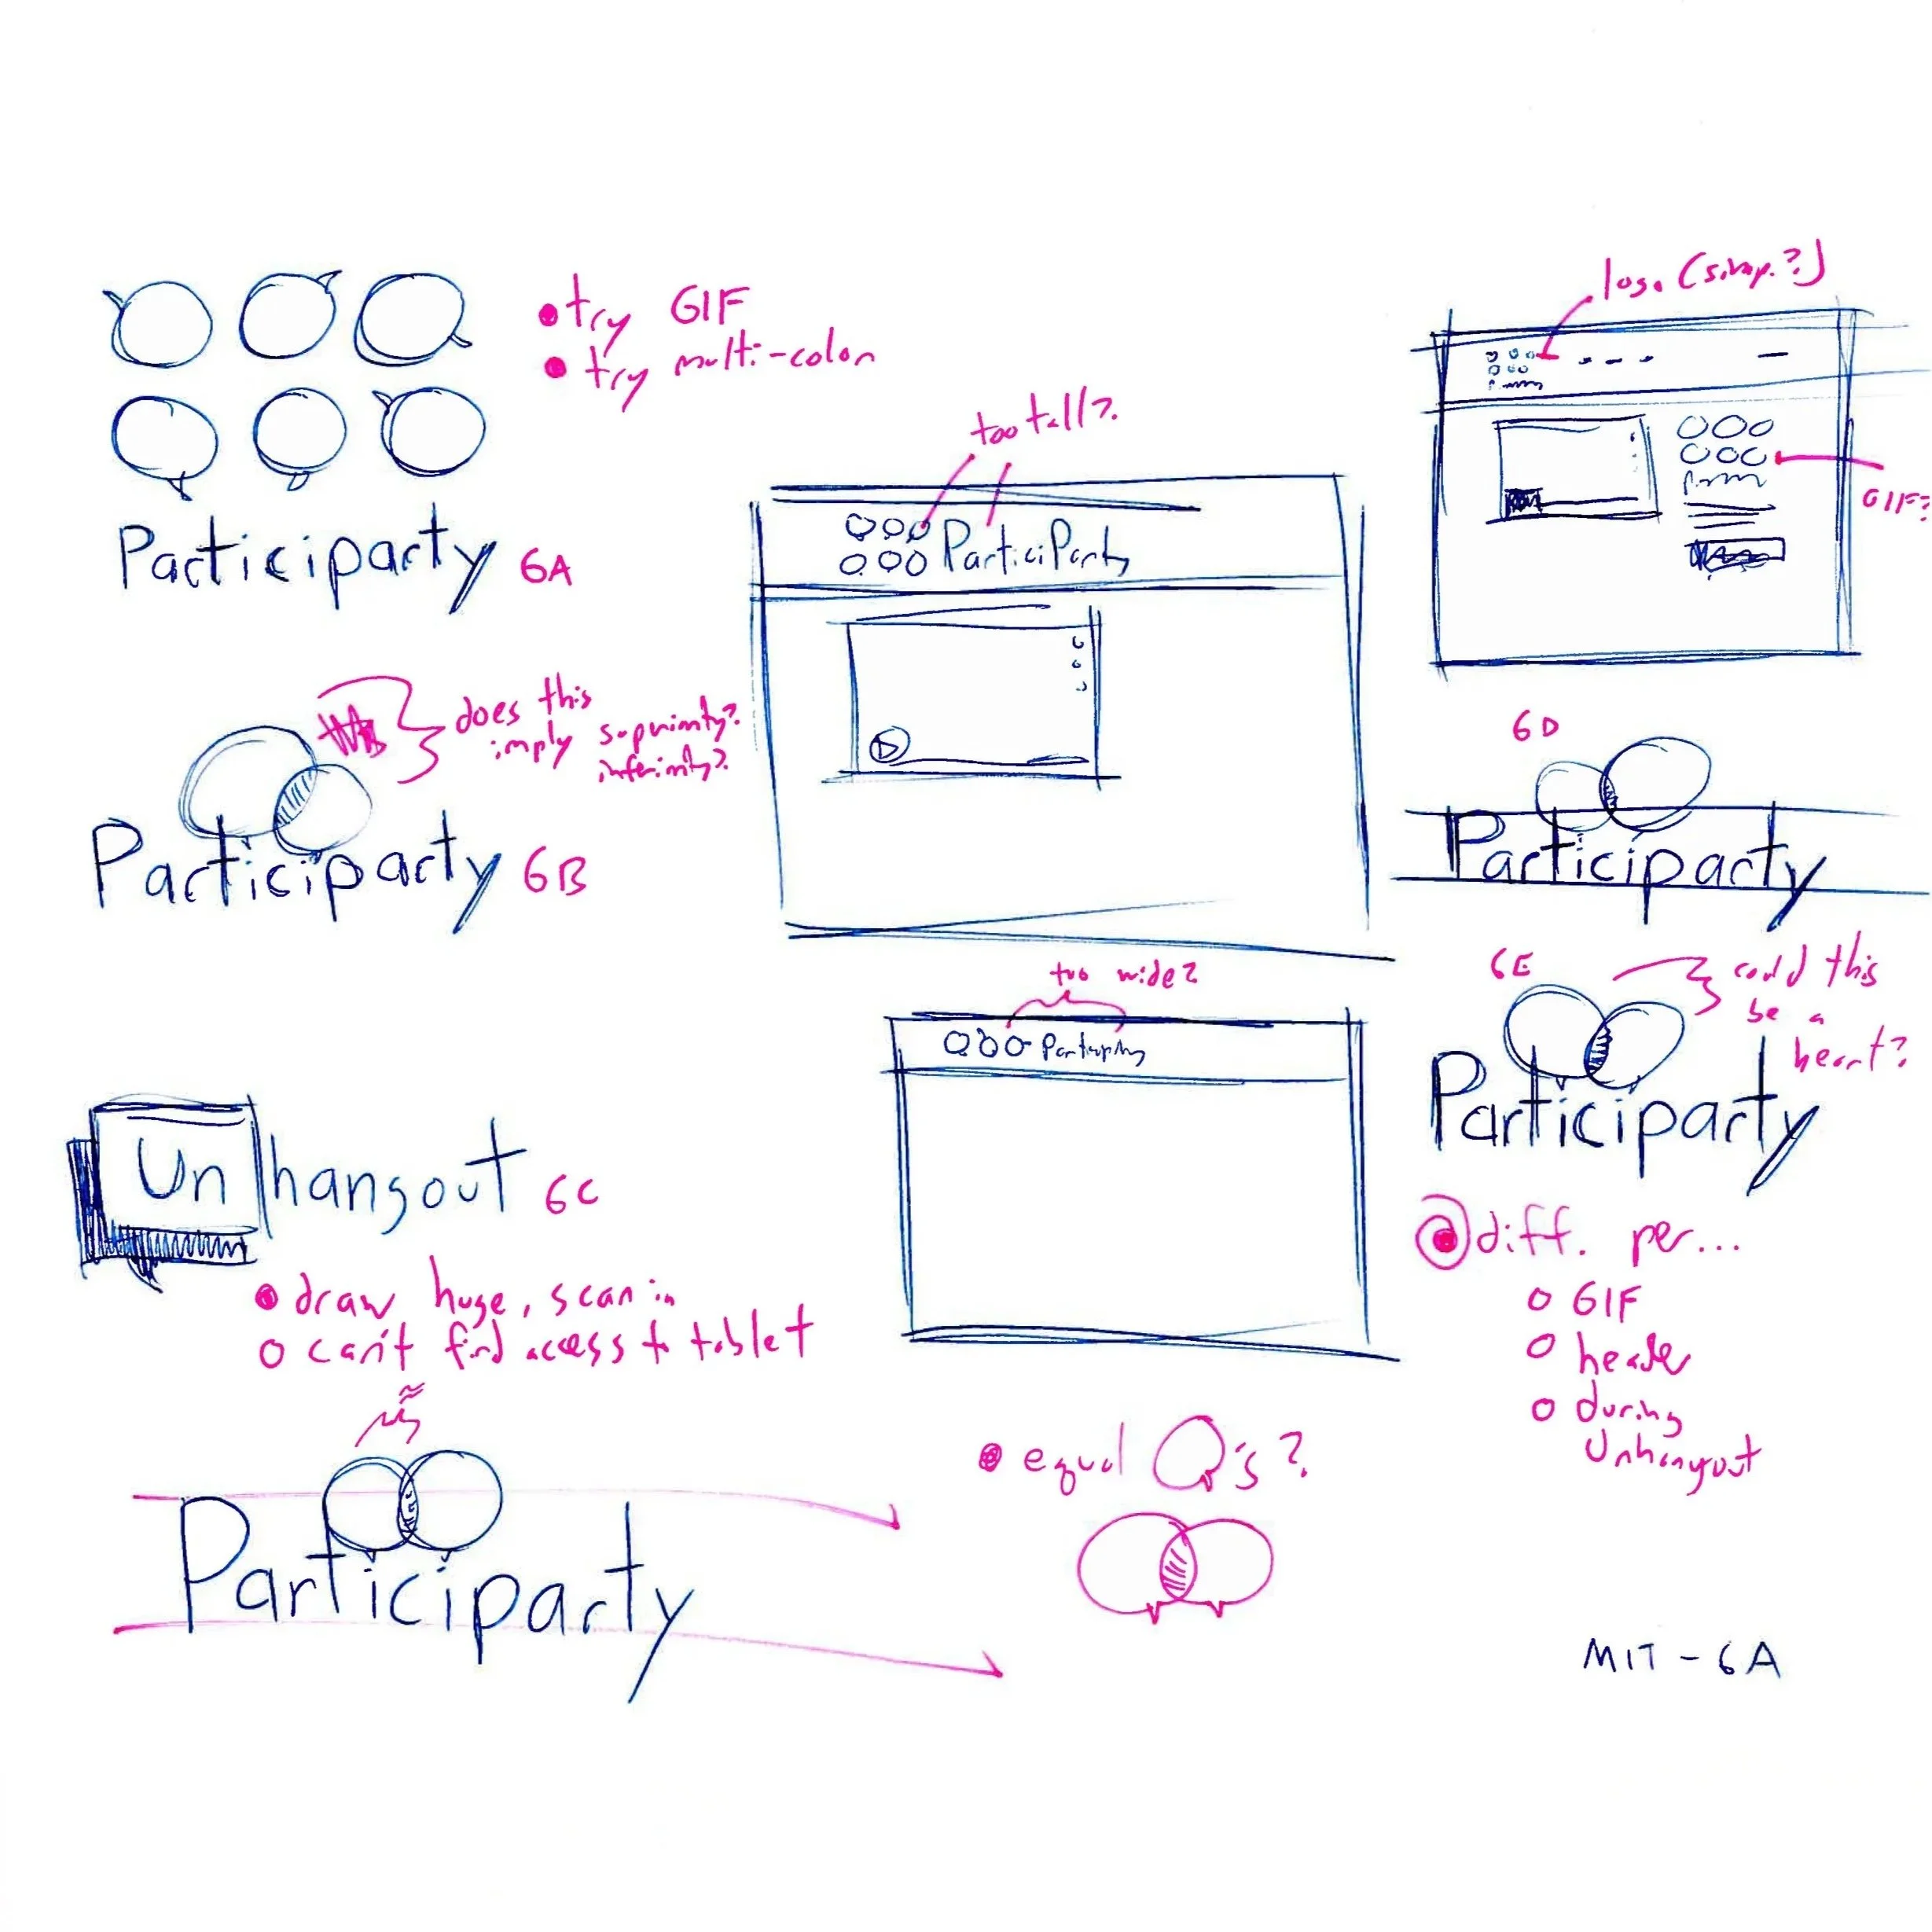 try GIF
try multi-color
Participarty 6A
does this
imply superiority?
inferiority?
Participarty 6B
Un hangout 6C
draw huge, scan in
can't find access to tablet
Participarty
too tall?
ParticiParty
too wide?
Participarty
equal Q's?
logo (simp.?)
GIF?
6D
Participarty
6E
could this
be a
heart?
Participarty
diff. per...
GIF
header
during
Unhangout
MIT - 6A